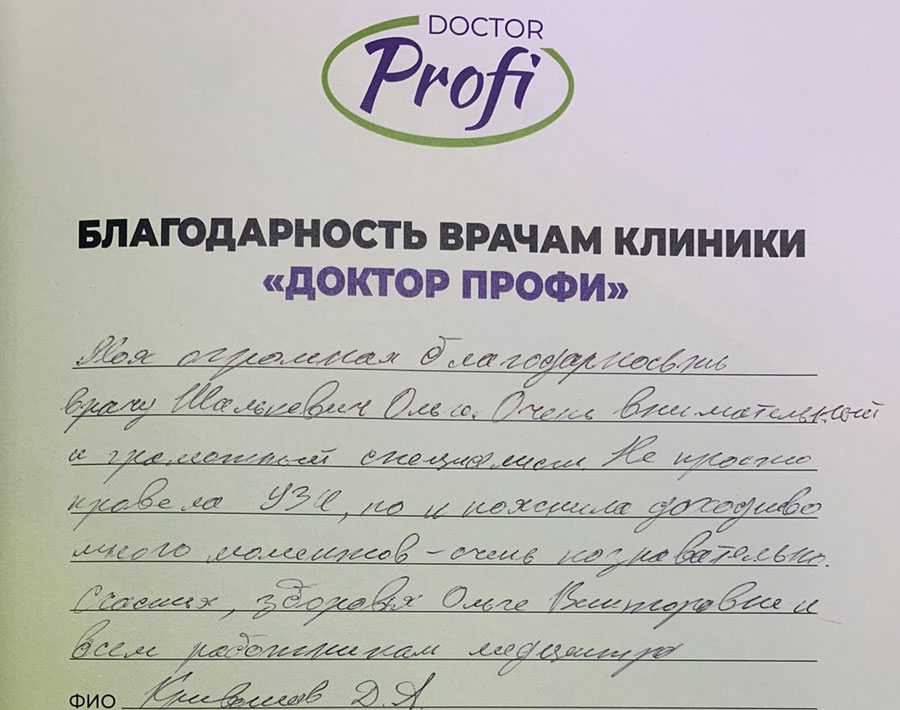 DOCTOR
Profi
БЛАГОДАРНОСТЬ ВРАЧАМ КЛИНИКИ
«ДОКТОР ПРОФИ»
Моя огромная благодарность
врачу Шалькевич Ольге. Очень внимательный
и грамотный специалист. Не просто
провела УЗИ, но и пояснила доходчиво
много моментов – очень познавательно.
Счастья, здоровья Ольге Викторовне и
всем работникам медцентра
ФИО Д.А